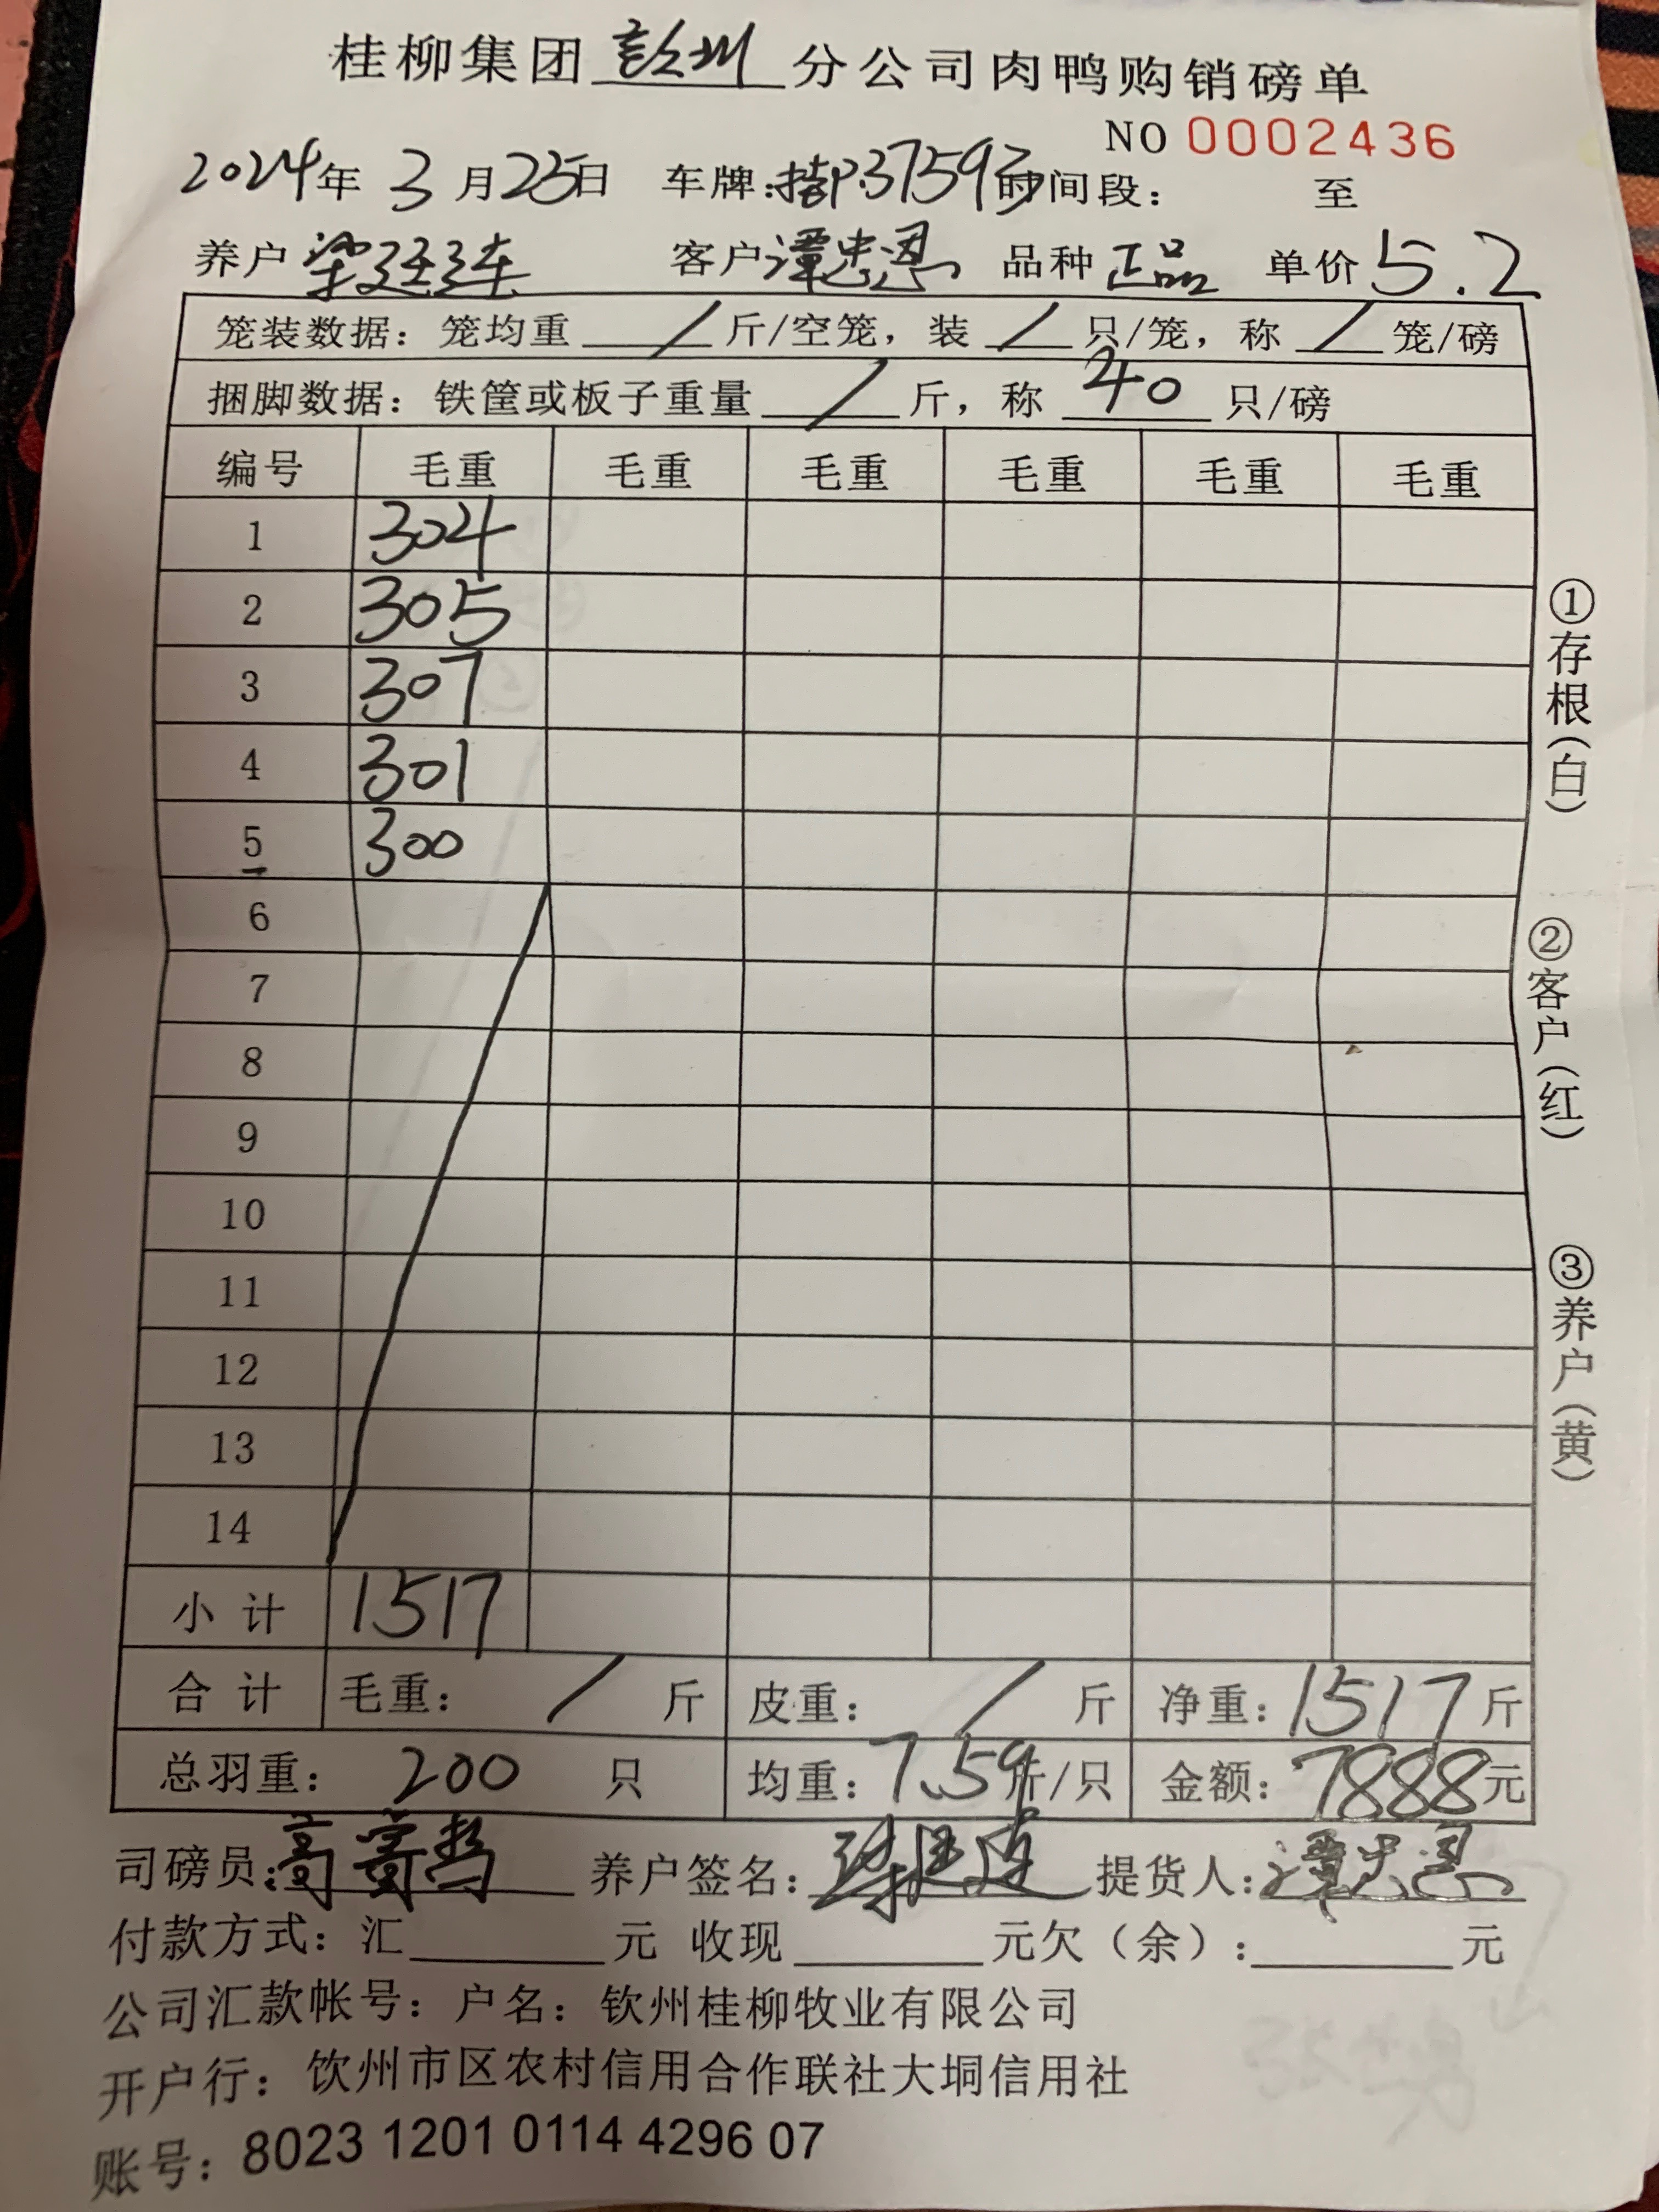 桂柳集团钦州分公司肉鸭购销磅单
NO 0002436
2024年 3月25日 车牌:桂P.37593 时间段: 至
养户 客户谭忠恩 品种正品 单价5.2
笼装数据:笼均重 / 斤/空笼,装 / 只/笼,称 / 笼/磅
捆脚数据:铁筐或板子重量 / 斤,称 40 只/磅
编号 毛重 毛重 毛重 毛重 毛重 毛重
1 304
2 305
3 307
4 301
5 300
6
7
8
9
10
11
12
13
14
小计 1517
合计 毛重: / 斤 皮重: / 斤 净重:1517斤
总羽重: 200 只 均重:7.59斤/只 金额:7888元
司磅员: 养户签名: 提货人:谭忠恩
付款方式:汇 元 收现 元欠(余): 元
公司汇款帐号:户名:钦州桂柳牧业有限公司
开户行:钦州市区农村信用合作联社大垌信用社
账号:8023 1201 0114 4296 07
①存根(白)
②客户(红)
③养户(黄)